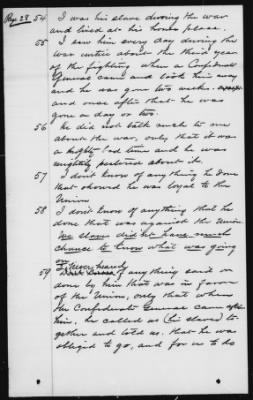 Page 28 54 I was his slave during the war
and lived at his home place.
55 I saw him every day during the
war until about the third year
of the fighting when a Confederate
General came and took him away
and he was gone two weeks.
and once after that he was
gone a day or two.
56 He did not talk much to me
about the war, only that it was
a mighty bad time and he was
mightily pestered about it.
57 I don't know of anything he done
that showed he was loyal to the
Union
58 I don't know of anything that he
done that was against the Union
We slaves did not have much
chance to know what was going
on
59 I never heard of anything said or
done by him that was in favor
of the Union, only that when
the Confederate General came after
him, he called us (his slaves) to-
gether and told us. that he was
obliged to go, and for us to do